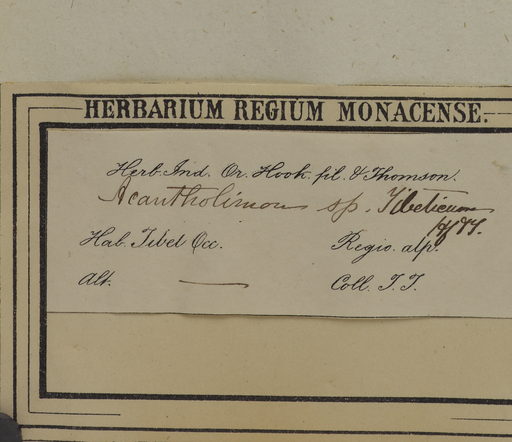 HERBARIUM REGIUM MONACENSE.
Herb. Ind. Or. Hook. fil. & Thomson.
Acantholimon sp. Tibeticum
HfTT.
Hab. Tibet Occ. Regio. alp.
Alt. — Coll. T. T.